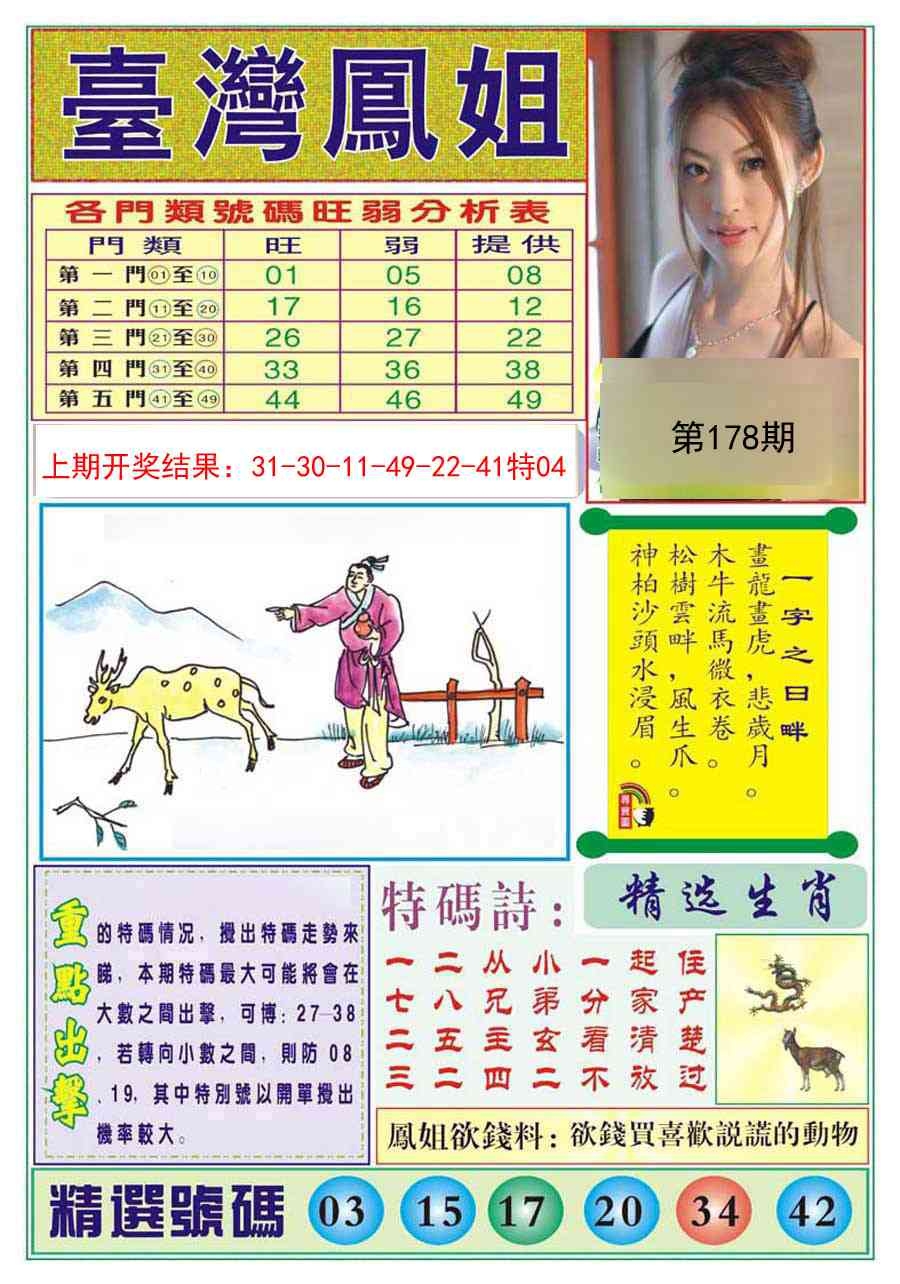 臺灣鳳姐
各門類號碼旺弱分析表
門類 旺 弱 提供
第一門01至10 01 05 08
第二門11至20 17 16 12
第三門21至30 26 27 22
第四門31至40 33 36 38
第五門41至49 44 46 49
第178期
上期开奖结果：31-30-11-49-22-41特04
一字之日畔
畫龍畫虎，悲歲月。
木牛流馬微衣卷。
松樹雲畔，風生爪。
神柏沙頭水浸眉。
重點出擊
的特碼情况，攪出特碼走勢來
睇，本期特碼最大可能將會在
大數之間出擊，可博：27—38
，若轉向小數之間，則防 08
、19，其中特別號以開單攪出
機率較大。
特碼詩：
一二从小一起住
七八兄弟分家产
二五主玄看清楚
三二四二不放过
精选生肖
鳳姐欲錢料：欲錢買喜歡説謊的動物
精選號碼 03 15 17 20 34 42